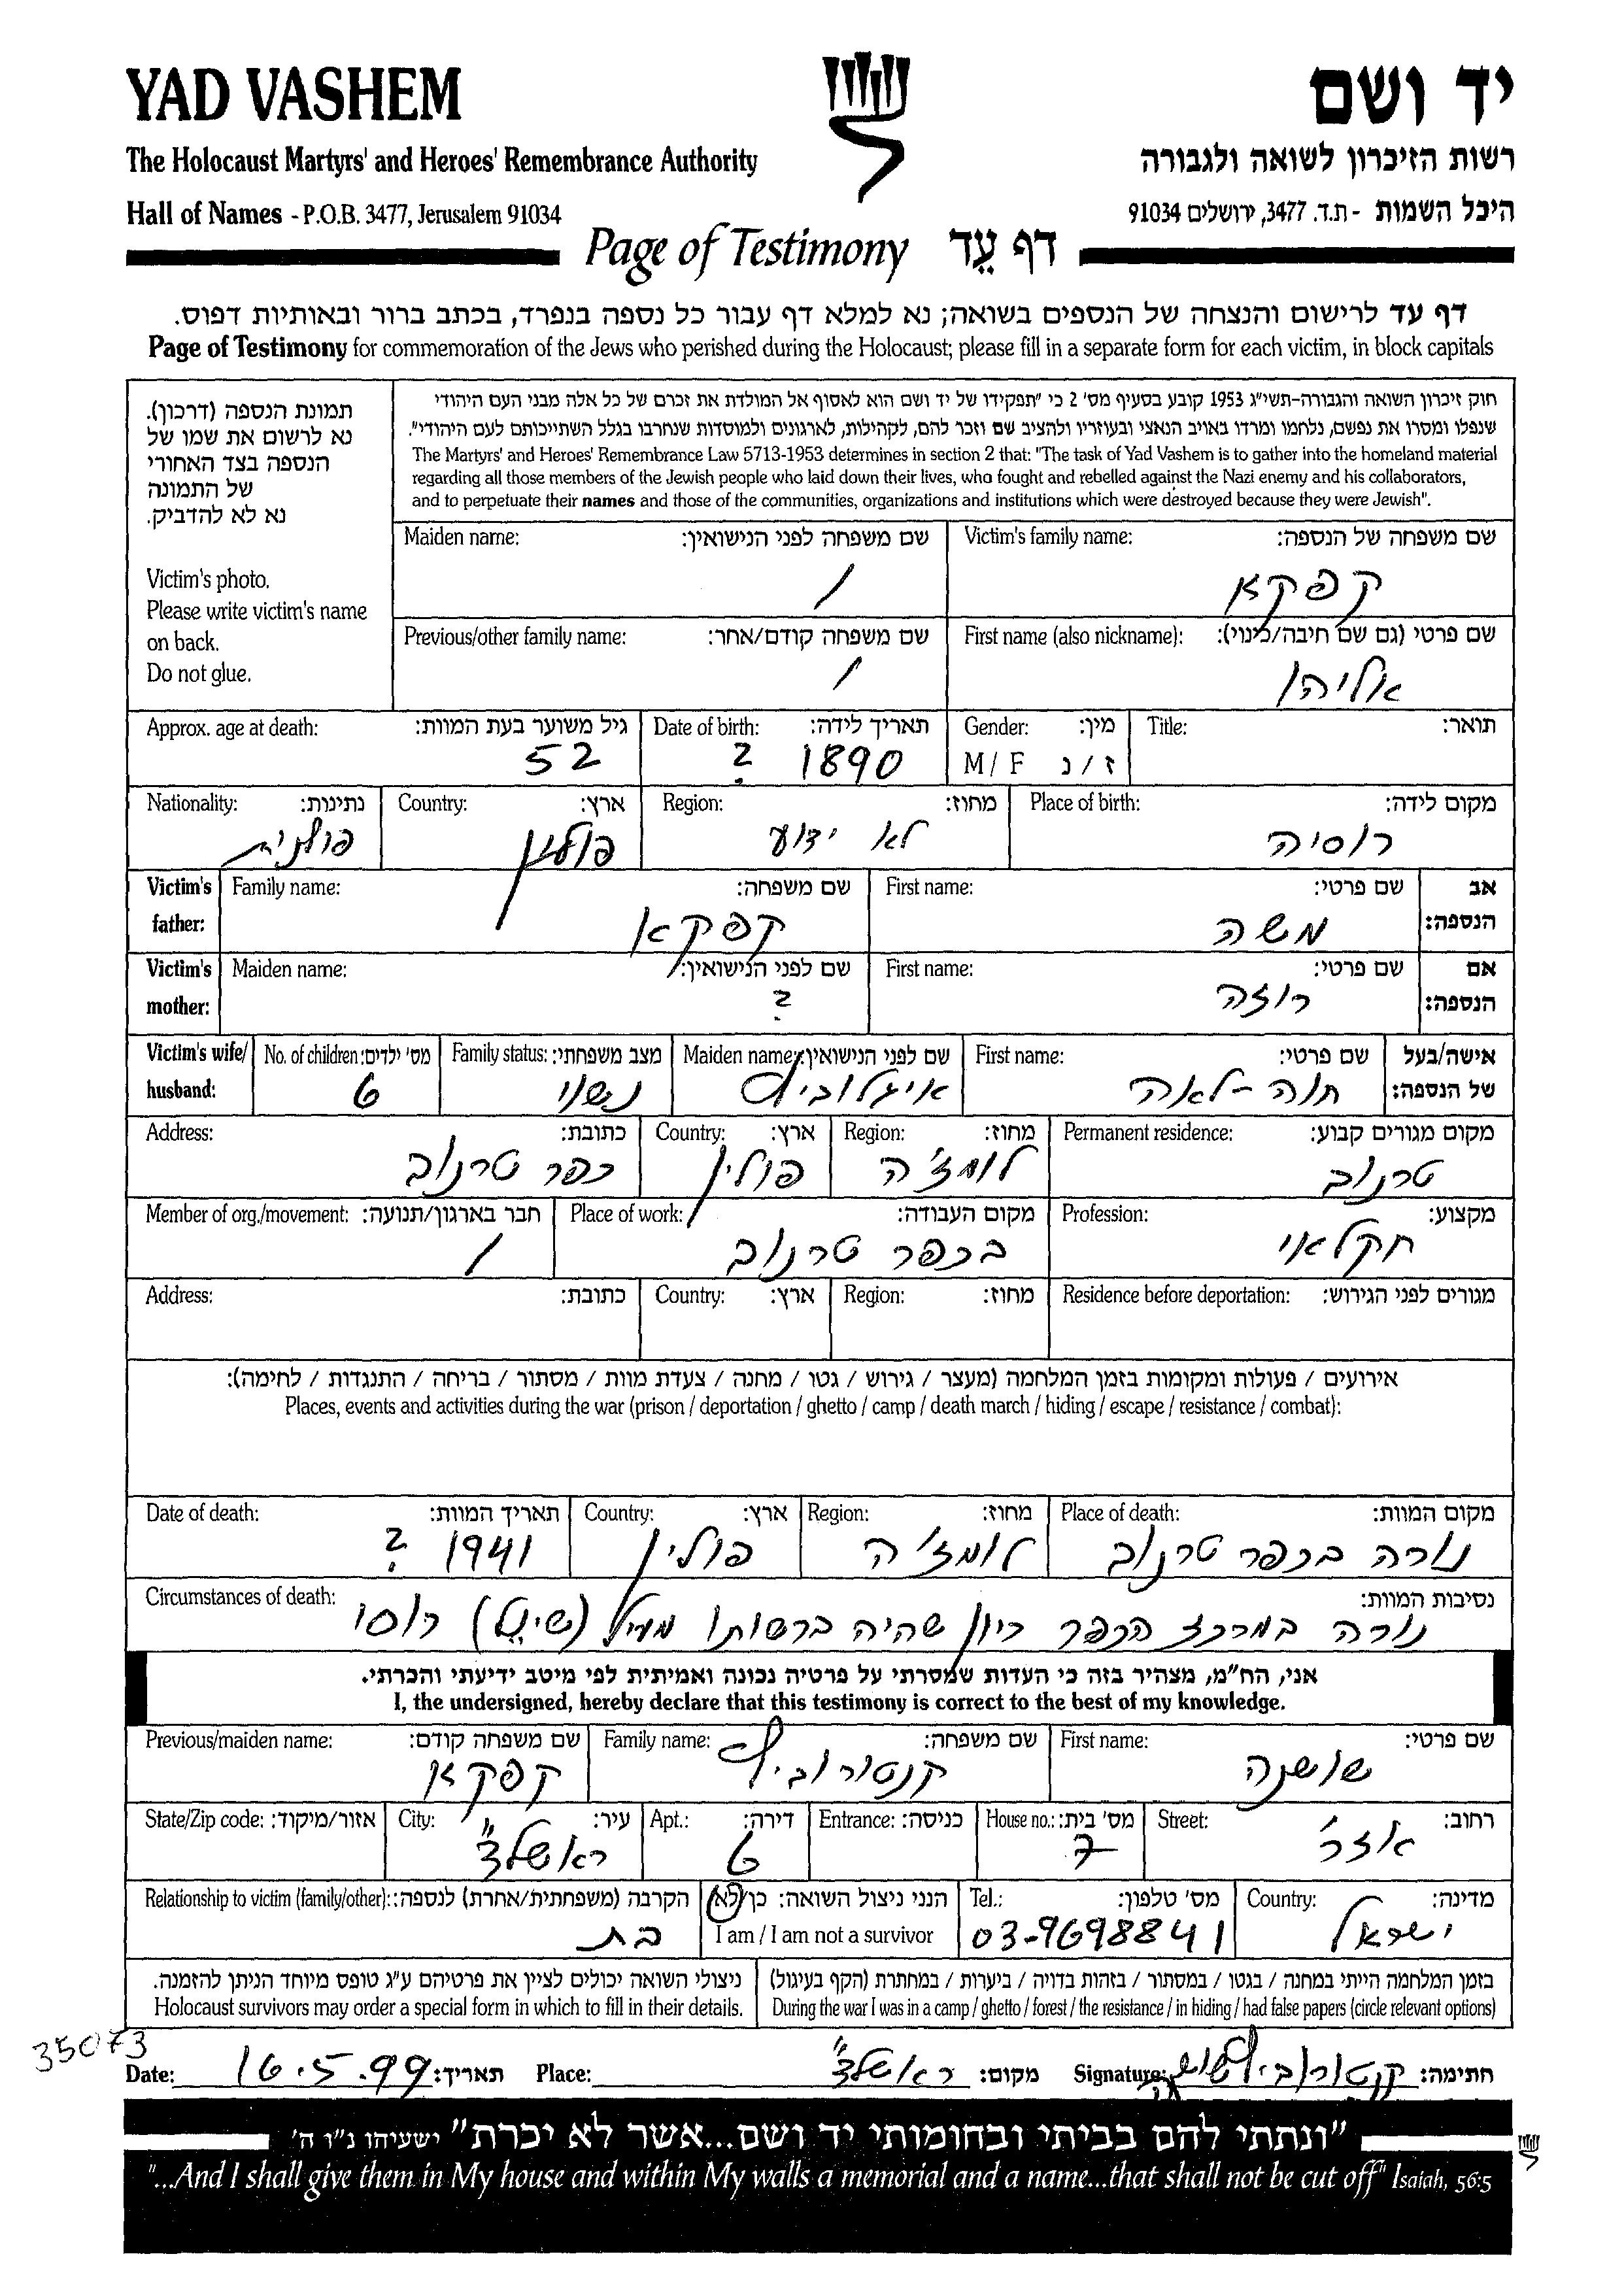 YAD VASHEM
יד ושם
The Holocaust Martyrs' and Heroes' Remembrance Authority
רשות הזיכרון לשואה ולגבורה
Hall of Names - P.O.B. 3477, Jerusalem 91034
היכל השמות - ת.ד. 3477, ירושלים 91034
Page of Testimony דף עֵד
דף עד לרישום והנצחה של הנספים בשואה; נא למלא דף עבור כל נספה בנפרד, בכתב ברור ובאותיות דפוס.
Page of Testimony for commemoration of the Jews who perished during the Holocaust; please fill in a separate form for each victim, in block capitals
תמונת הנספה (דרכון).
נא לרשום את שמו של
הנספה בצד האחורי
של התמונה
נא לא להדביק.
Victim's photo.
Please write victim's name
on back.
Do not glue.
חוק זיכרון השואה והגבורה-תשי"ג 1953 קובע בסעיף מס' 2 כי "תפקידו של יד ושם הוא לאסוף אל המולדת את זכרם של כל אלה מבני העם היהודי
שנפלו ומסרו את נפשם, נלחמו ומרדו באויב הנאצי ובעוזריו ולהציב שם וזכר להם, לקהילות, לארגונים ולמוסדות שנחרבו בגלל השתייכותם לעם היהודי".
The Martyrs' and Heroes' Remembrance Law 5713-1953 determines in section 2 that: "The task of Yad Vashem is to gather into the homeland material
regarding all those members of the Jewish people who laid down their lives, who fought and rebelled against the Nazi enemy and his collaborators,
and to perpetuate their names and those of the communities, organizations and institutions which were destroyed because they were Jewish".
Victim's family name: שם משפחה של הנספה:
קפקא
Maiden name: שם משפחה לפני הנישואין:
/
First name (also nickname): שם פרטי (גם שם חיבה/כינוי):
אליהו
Previous/other family name: שם משפחה קודם/אחר:
/
Title: תואר:
Gender: מין:
M / F ז / נ
Date of birth: תאריך לידה:
1890 ?
Approx. age at death: גיל משוער בעת המוות:
52
Place of birth: מקום לידה:
רוסיה
Region: מחוז:
לא ידוע
Country: ארץ:
פולין
Nationality: נתינות:
פולנית
Victim's father: אב הנספה:
First name: שם פרטי:
משה
Family name: שם משפחה:
קפקא
Victim's mother: אם הנספה:
First name: שם פרטי:
רוזה
Maiden name: שם לפני הנישואין:
?
Victim's wife/ husband: אישה/בעל של הנספה:
First name: שם פרטי:
חוה-לאה
Maiden name: שם לפני הנישואין:
Family status: מצב משפחתי:
נשוי
No. of children: מס' ילדים:
6
Permanent residence: מקום מגורים קבוע:
טרנוב
Region: מחוז:
לומז'ה
Country: ארץ:
פולין
Address: כתובת:
כפר טרנוב
Profession: מקצוע:
חקלאי
Place of work: מקום העבודה:
בכפר טרנוב
Member of org./movement: חבר בארגון/תנועה:
/
Residence before deportation: מגורים לפני הגירוש:
Region: מחוז:
Country: ארץ:
Address: כתובת:
אירועים / פעולות ומקומות בזמן המלחמה (מעצר / גירוש / גטו / מחנה / צעדת מוות / מסתור / בריחה / התנגדות / לחימה):
Places, events and activities during the war (prison / deportation / ghetto / camp / death march / hiding / escape / resistance / combat):
Place of death: מקום המוות:
נורה בכפר טרנוב
Region: מחוז:
לומז'ה
Country: ארץ:
פולין
Date of death: תאריך המוות:
1941 ?
Circumstances of death: נסיבות המוות:
נורה במרכז הכפר כיון שהיה ברשותו מעיל (שינל) רוסי
אני, הח"מ, מצהיר בזה כי העדות שמסרתי על פרטיה נכונה ואמיתית לפי מיטב ידיעתי והכרתי.
I, the undersigned, hereby declare that this testimony is correct to the best of my knowledge.
First name: שם פרטי:
שושנה
Family name: שם משפחה:
קנטורוביץ
Previous/maiden name: שם משפחה קודם:
קפקא
Street: רחוב:
אזר
House no.: מס' בית:
7
Entrance: כניסה:
Apt.: דירה:
6
City: עיר:
ראשל"צ
State/Zip code: אזור/מיקוד:
Country: מדינה:
ישראל
Tel.: מס' טלפון:
03-9698841
הנני ניצול השואה: כן/לא
I am / I am not a survivor
Relationship to victim (family/other): הקרבה (משפחתית/אחרת) לנספה:
בת
בזמן המלחמה הייתי במחנה / בגטו / במסתור / בזהות בדויה / ביערות / במחתרת (הקף בעיגול)
During the war I was in a camp / ghetto / forest / the resistance / in hiding / had false papers (circle relevant options)
ניצולי השואה יכולים לציין את פרטיהם ע"ג טופס מיוחד הניתן להזמנה.
Holocaust survivors may order a special form in which to fill in their details.
35073
Date: 16.5.99 תאריך: Place: ראשל"צ מקום: Signature: קנטורוביץ חתימה:
"ונתתי להם בביתי ובחומותי יד ושם...אשר לא יכרת" ישעיהו נ"ו ה'
"...And I shall give them in My house and within My walls a memorial and a name...that shall not be cut off" Isaiah, 56:5